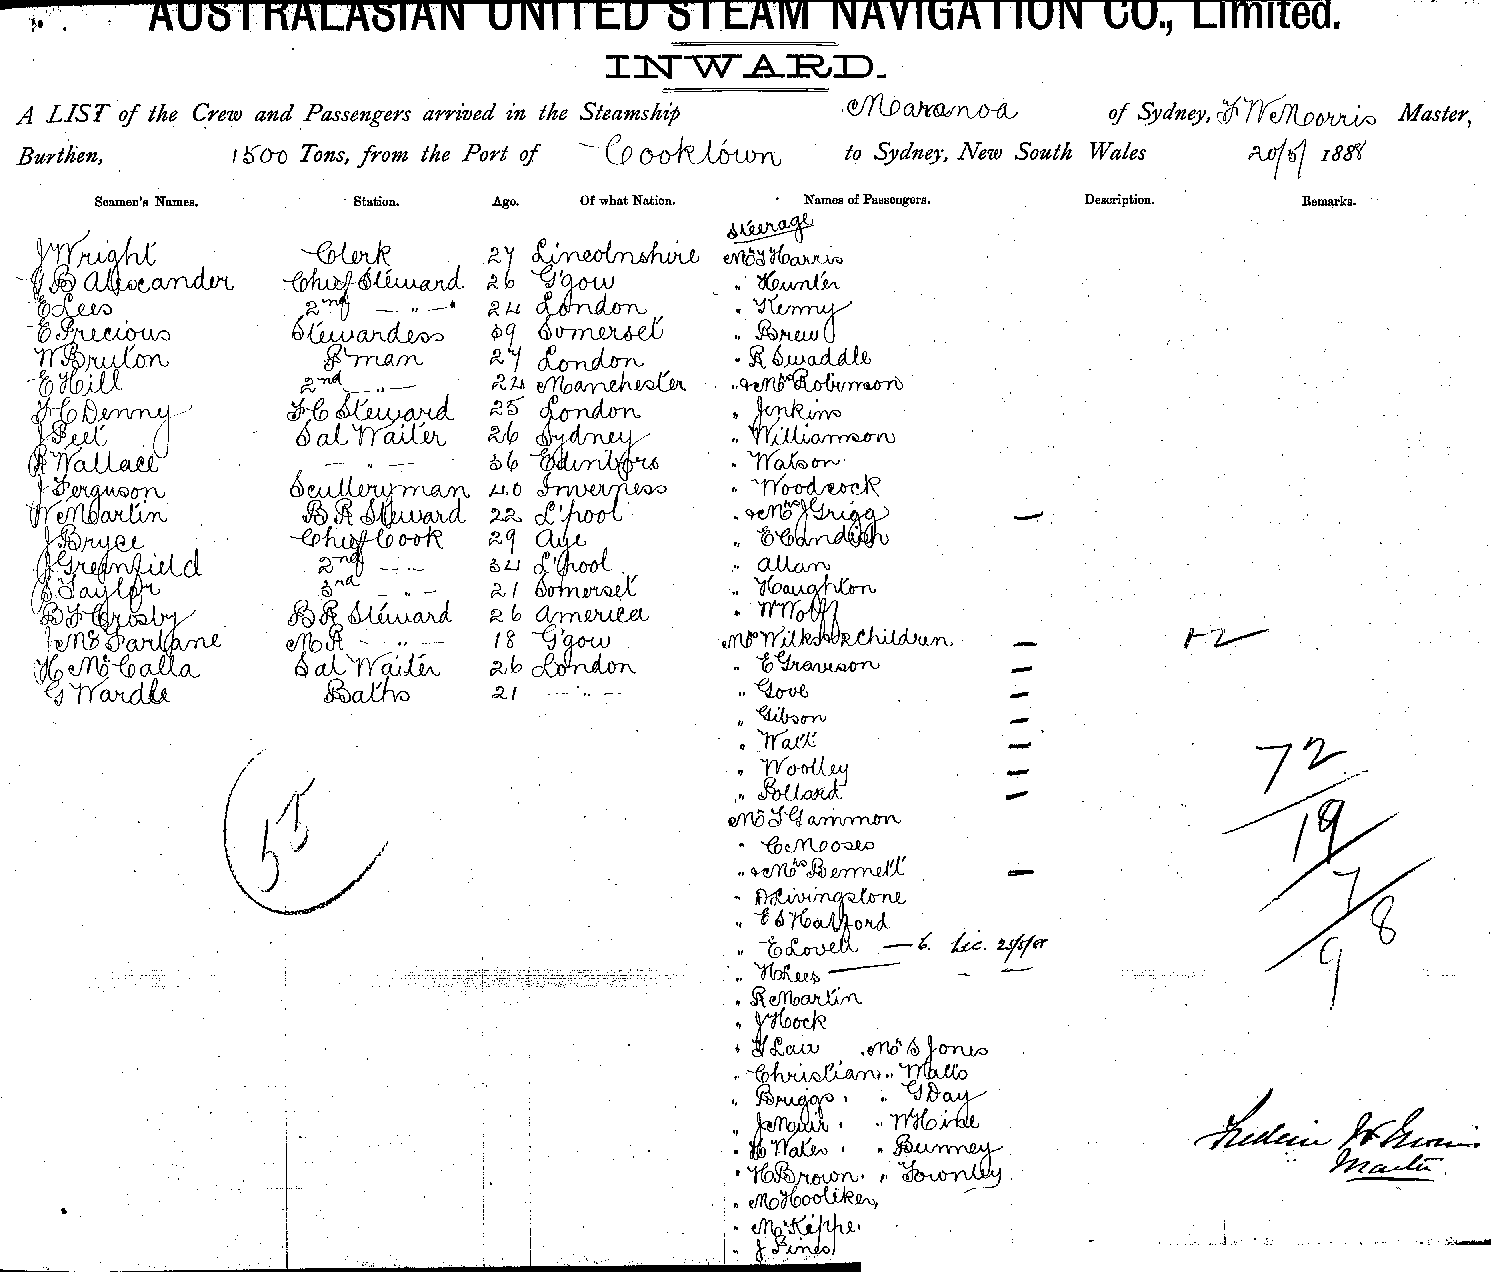 AUSTRALASIAN UNITED STEAM NAVIGATION CO., Limited.
INWARD.
A LIST of the Crew and Passengers arrived in the Steamship Maranoa of Sydney, F W Morris Master,
Burthen, 1500 Tons, from the Port of Cooktown to Sydney, New South Wales 20/5/ 1888
Seamen's Names. Station. Age. Of what Nation. Names of Passengers. Description. Remarks.
Steerage
J Wright Clerk 27 Lincolnshire Mr T Harris
J B Alexander Chief Steward 26 G'gow " Hunter
E Lees 2nd — " — 24 London " Kenny
E Precious Stewardess 39 Somerset " Brew
W Bruton P'man 27 London " R Swaddle
E Hill 2nd — " — 24 Manchester " & Mrs Robinson
F C Denny F C Steward 25 London " Jenkins
J Peet Sal Waiter 26 Sydney " Williamson
R Wallace — " — 36 " Watson
J Ferguson Scullery man 40 Inverness " Woodcock
W Martin B R Steward 22 L'pool " & Mrs J Grigg —
J Bryce Chief Cook 29 " E Candish
J Greenfield 2nd — " — 34 L'pool " Allan
S Taylor 3rd — " — 21 Somerset " Haughton
B F Crosby B R Steward 26 America " W Wolff
J McFarlane M R — " — 18 G'gow Mrs Wilks & 2 Children — + 2
H McCalla Sal Waiter 26 London " E Graveson —
G Wardle Baths 21 — " — " Gove —
" Gibson —
" Watt —
" Woolley —
" Pollard —
Mr T Gammon
" C Mooses
" & Mrs Bennett —
" D Livingstone
" E S Halford
" E Lovell — 6. Lic. 25/5/88
" H Lees —
" R Martin
" J Hock
" Law Mr S Jones
" Christian " Matts
" Briggs " G Day
" J Muir " W Hine
" H Wates " Bunney
" H Brown " Townley
" M Hooliker
" McKippe
" J Pines
55
72
19
7
8
9
Frederic W Morris
Master